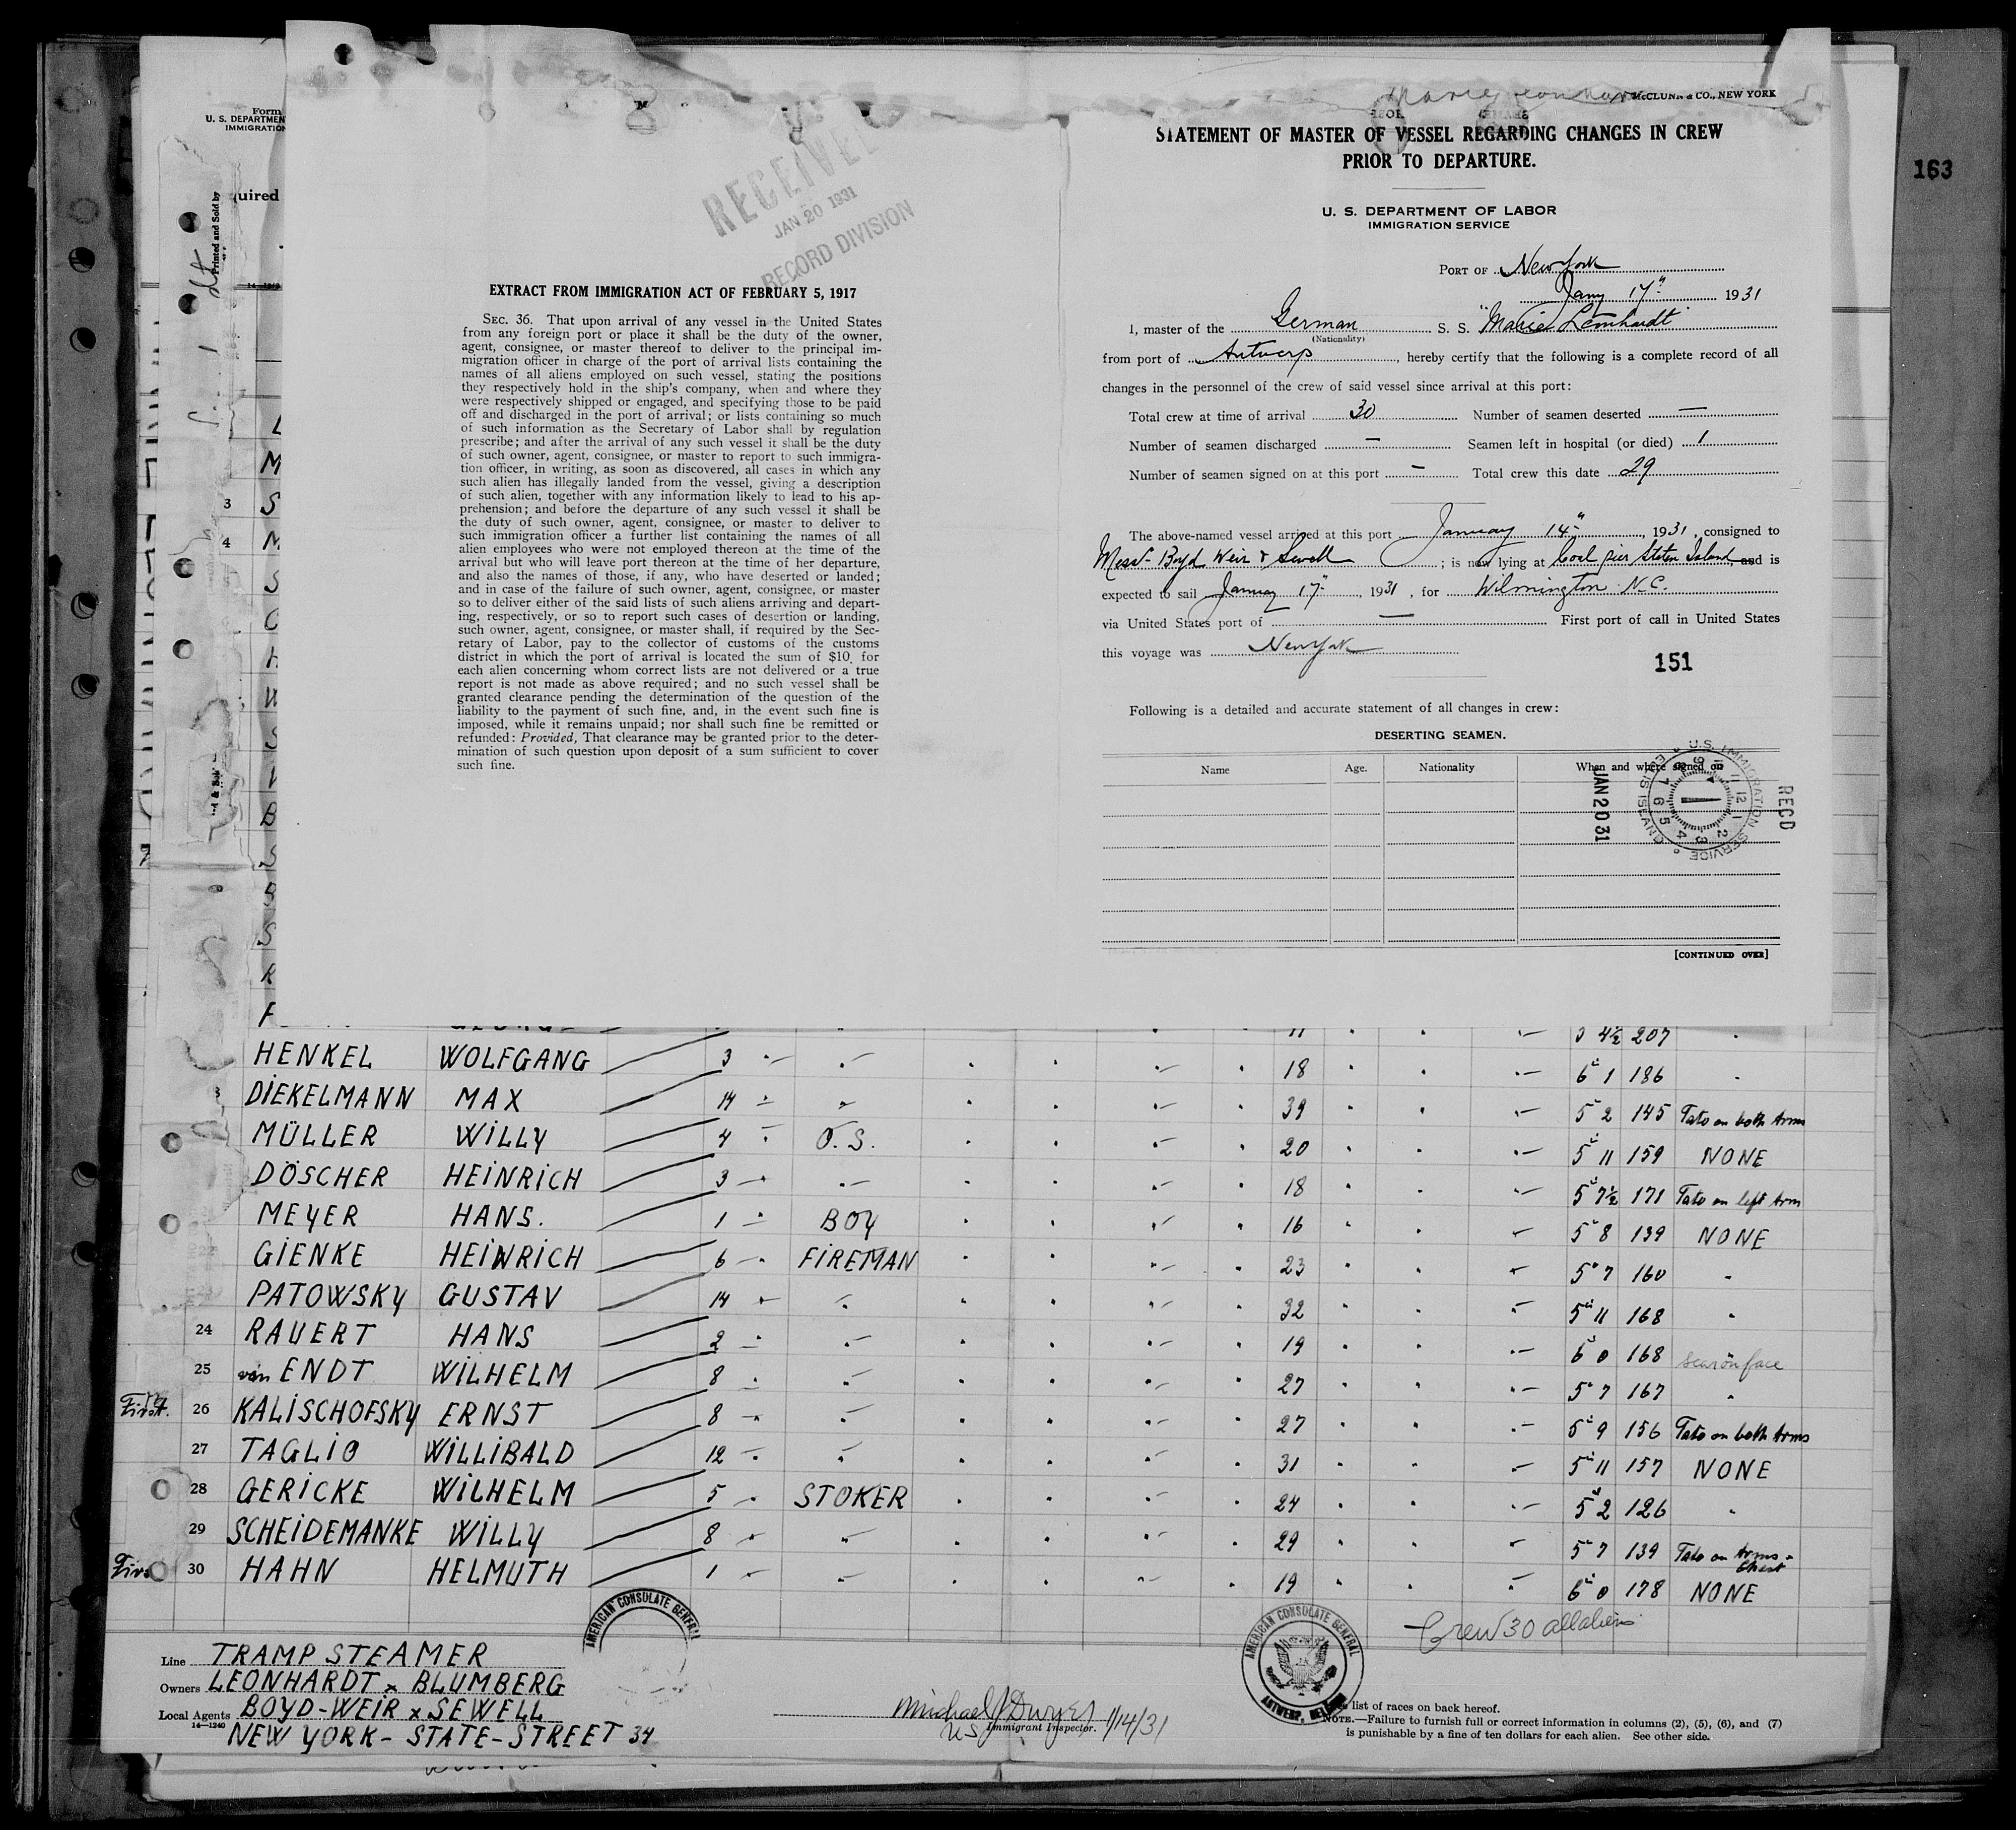 163
Form
U. S. DEPARTMEN
IMMIGRATION
quired
Printed and Sold by
RECEIVED
JAN 20 1931
RECORD DIVISION
EXTRACT FROM IMMIGRATION ACT OF FEBRUARY 5, 1917
SEC. 36. That upon arrival of any vessel in the United States
from any foreign port or place it shall be the duty of the owner,
agent, consignee, or master thereof to deliver to the principal im-
migration officer in charge of the port of arrival lists containing the
names of all aliens employed on such vessel, stating the positions
they respectively hold in the ship's company, when and where they
were respectively shipped or engaged, and specifying those to be paid
off and discharged in the port of arrival; or lists containing so much
of such information as the Secretary of Labor shall by regulation
prescribe; and after the arrival of any such vessel it shall be the duty
of such owner, agent, consignee, or master to report to such immigra-
tion officer, in writing, as soon as discovered, all cases in which any
such alien has illegally landed from the vessel, giving a description
of such alien, together with any information likely to lead to his ap-
prehension; and before the departure of any such vessel it shall be
the duty of such owner, agent, consignee, or master to deliver to
such immigration officer a further list containing the names of all
alien employees who were not employed thereon at the time of the
arrival but who will leave port thereon at the time of her departure,
and also the names of those, if any, who have deserted or landed;
and in case of the failure of such owner, agent, consignee, or master
so to deliver either of the said lists of such aliens arriving and depart-
ing, respectively, or so to report such cases of desertion or landing,
such owner, agent, consignee, or master shall, if required by the Sec-
retary of Labor, pay to the collector of customs of the customs
district in which the port of arrival is located the sum of $10 for
each alien concerning whom correct lists are not delivered or a true
report is not made as above required; and no such vessel shall be
granted clearance pending the determination of the question of the
liability to the payment of such fine, and, in the event such fine is
imposed, while it remains unpaid; nor shall such fine be remitted or
refunded: Provided, That clearance may be granted prior to the deter-
mination of such question upon deposit of a sum sufficient to cover
such fine.
McCLUNN & CO., NEW YORK
STATEMENT OF MASTER OF VESSEL REGARDING CHANGES IN CREW
PRIOR TO DEPARTURE.
U. S. DEPARTMENT OF LABOR
IMMIGRATION SERVICE
PORT OF New York
Jany 17" 1931
I, master of the German S. S. "Marie Leonhardt"
(Nationality)
from port of Antwerp, hereby certify that the following is a complete record of all
changes in the personnel of the crew of said vessel since arrival at this port:
Total crew at time of arrival 30 Number of seamen deserted —
Number of seamen discharged — Seamen left in hospital (or died) 1
Number of seamen signed on at this port — Total crew this date 29
The above-named vessel arrived at this port January 14", 1931, consigned to
Messr Boyd Weir & Sewell; is now lying at Coal pier Staten Island, and is
expected to sail January 17", 1931, for Wilmington N.C.
via United States port of — First port of call in United States
this voyage was New York
151
Following is a detailed and accurate statement of all changes in crew:
DESERTING SEAMEN.
Name Age. Nationality When and where signed on
U.S. IMMIGRATION SERVICE ELLIS ISLAND
REC'D
JAN 20 31
[CONTINUED OVER]
11 5 4½ 207
HENKEL WOLFGANG 3 18 6 1 186
DIEKELMANN MAX 14 39 5 2 145 Tato on both Arms
MÜLLER WILLY 4 O.S. 20 5 11 159 NONE
DÖSCHER HEINRICH 3 18 5 7½ 171 Tato on left Arm
MEYER HANS. 1 BOY 16 5 8 139 NONE
GIENKE HEINRICH 6 FIREMAN 23 5 7 160
PATOWSKY GUSTAV 14 32 5 11 168
24 RAUERT HANS 2 19 6 0 168 scar on face
25 van ENDT WILHELM 8 27 5 7 167
First. 26 KALISCHOFSKY ERNST 8 27 5 9 156 Tato on both Arms
27 TAGLIO WILLIBALD 12 31 5 11 157 NONE
28 GERICKE WILHELM 5 STOKER 24 5 2 126
29 SCHEIDEMANKE WILLY 8 29 5 7 139 Tato on Arms - Chest
First 30 HAHN HELMUTH 1 19 6 0 178 NONE
AMERICAN CONSULATE GENERAL
AMERICAN CONSULATE GENERAL ANTWERP, BELGIUM
Crew 30 all aliens
Line TRAMP STEAMER
Owners LEONHARDT x BLUMBERG
Local Agents BOYD-WEIR x SEWELL
14—1240
NEW YORK - STATE-STREET 34
Michael J Dwyer 1/14/31
U.S. Immigrant Inspector.
list of races on back hereof.
NOTE.—Failure to furnish full or correct information in columns (2), (5), (6), and (7)
is punishable by a fine of ten dollars for each alien. See other side.